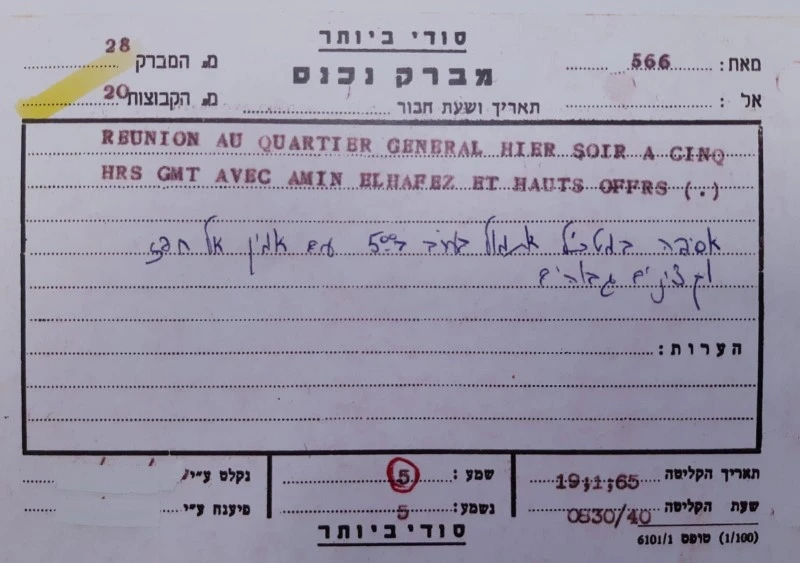 סודי ביותר
מאת: 566
מברק נכנס
מ. המברק 28
אל :
תאריך ושעת חבור
מ. הקבוצות 20
REUNION AU QUARTIER GENERAL HIER SOIR A CINQ
HRS GMT AVEC AMIN ELHAFEZ ET HAUTS OFFRS (.)
אסיפה במטכ"ל אתמול בערב ב 5⁰⁰ עם אמין אל חפז
וקצינים גבוהים
הערות:
תאריך הקליטה 19;1;65
שעת הקליטה 0830/40
שמע: 5
נשמע: 5
נקלט ע"י
פיענח ע"י
סודי ביותר
(1/100) טופס 6101/1